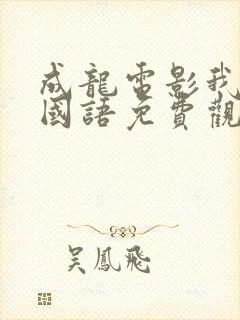 成龍電影我
國語免費觀
吳鳳飛